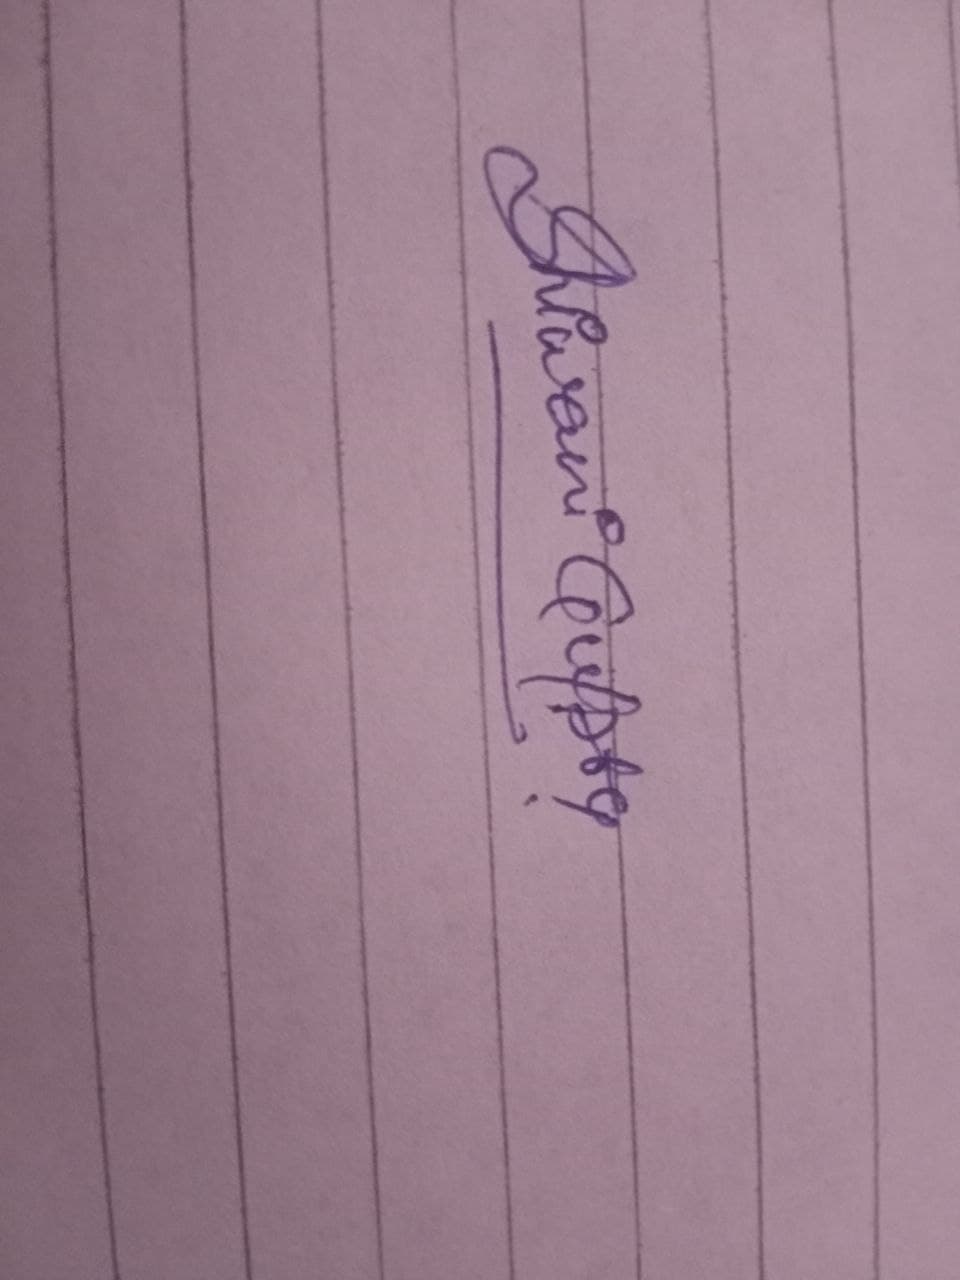 Shivani Gupta